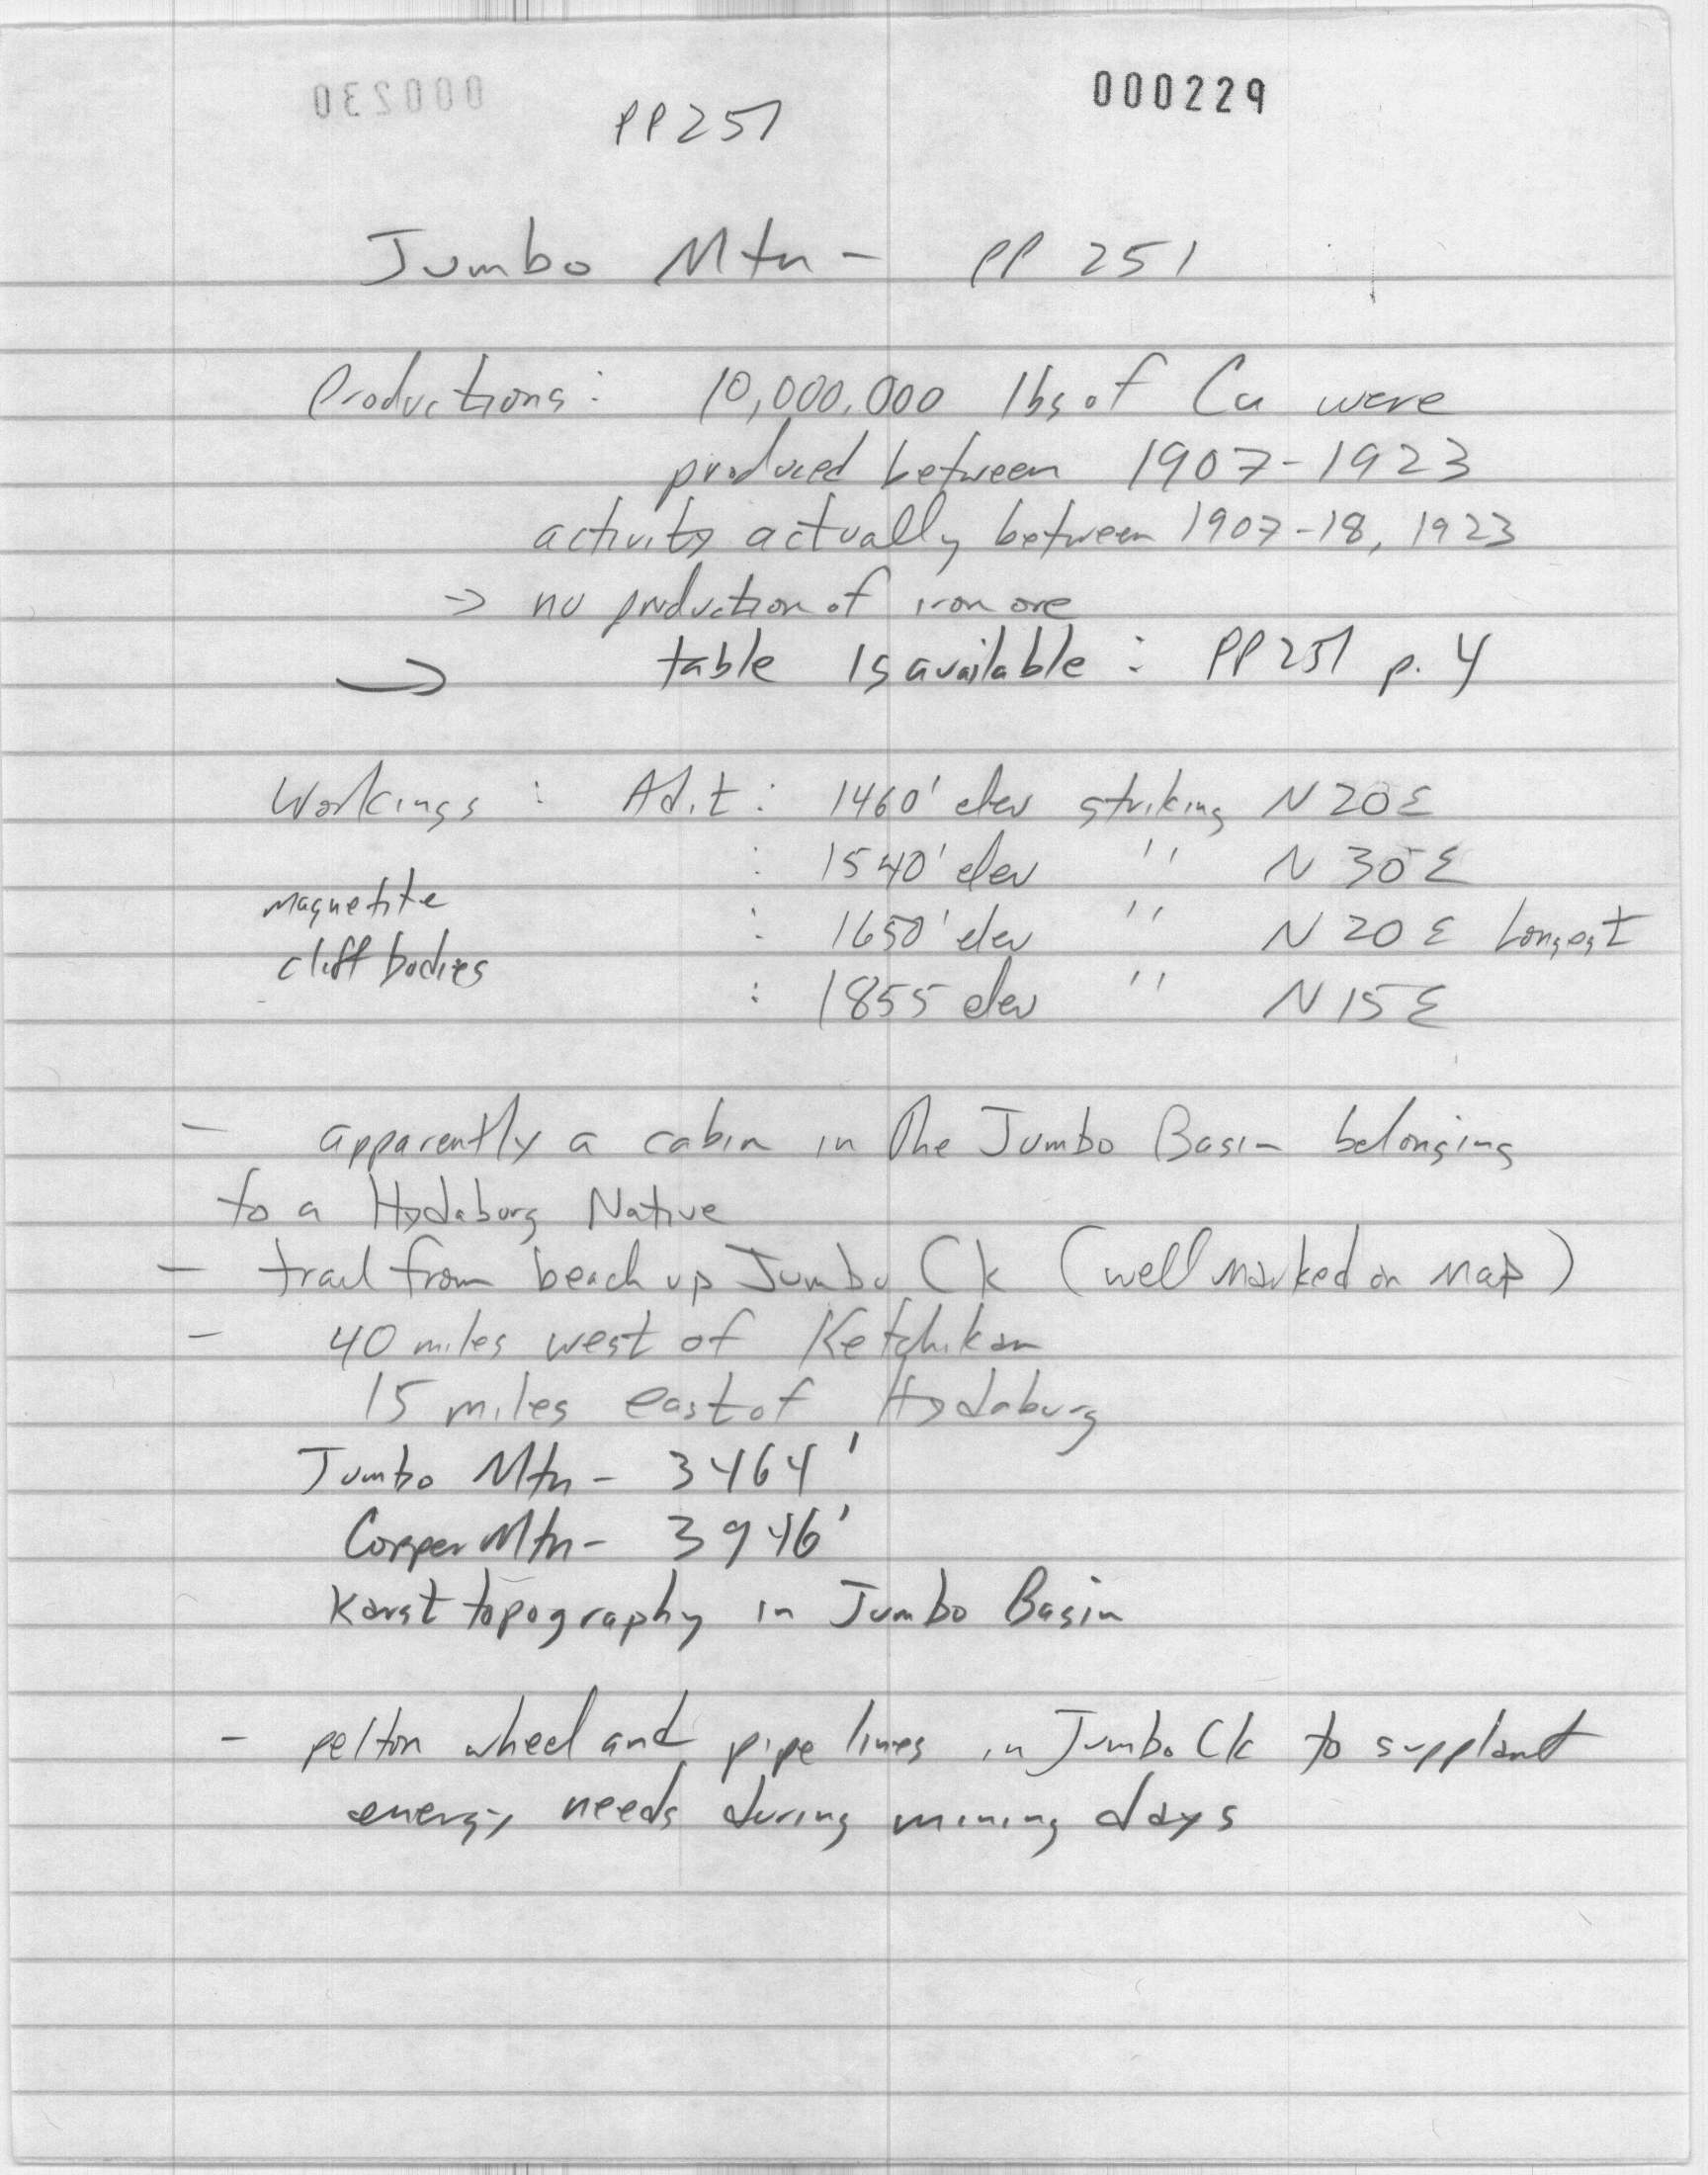 000230
000229
PP 251
Jumbo Mtn - PP 251
Productions: 10,000,000 lbs of Cu were
produced between 1907-1923
activity actually between 1907-18, 1923
-> no production of iron ore
-> table is available : PP 251 p. 4
Workings : Adit : 1460' elev striking N 20 E
: 1540' elev '' N 30 E
magnetite
: 1650' elev '' N 20 E Longest
cliff bodies
: 1855 elev '' N 15 E
- apparently a cabin in the Jumbo Basin belonging
to a Hydaburg Native
- trail from beach up Jumbo Ck (well marked on map)
- 40 miles west of Ketchikan
15 miles east of Hydaburg
Jumbo Mtn - 3464'
Copper Mtn - 3946'
Karst topography in Jumbo Basin
- pelton wheel and pipe lines in Jumbo Ck to supplant
energy needs during mining days